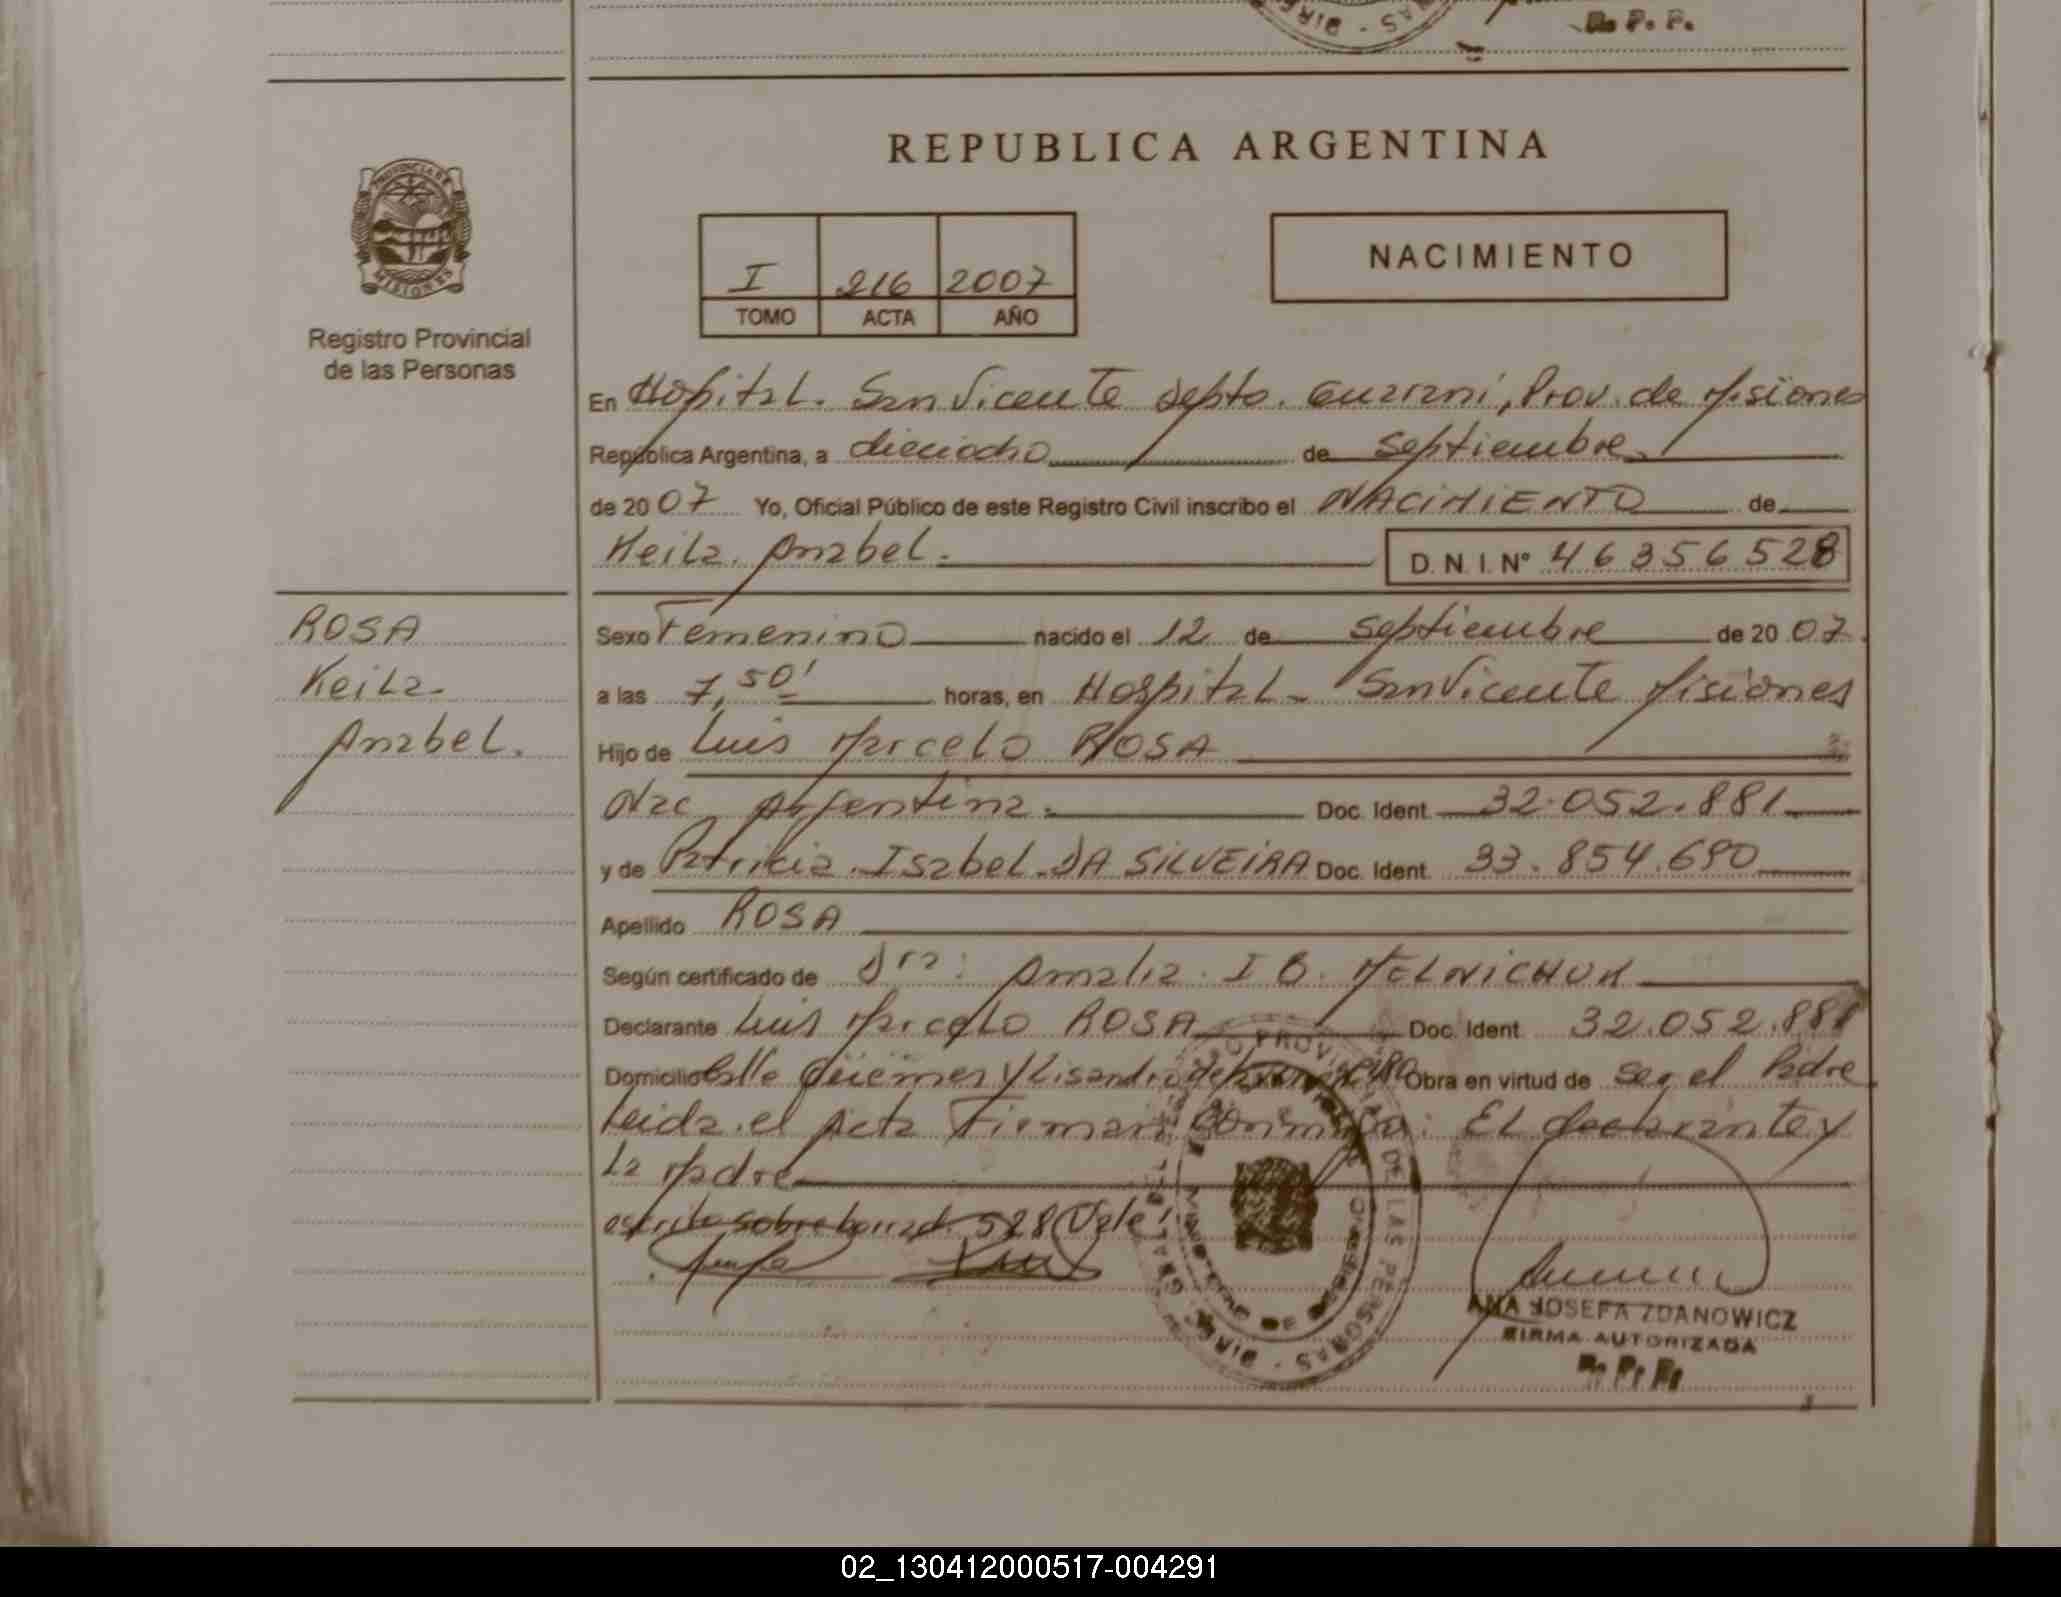 R. P. P.
REPUBLICA ARGENTINA
PROVINCIA DE
MISIONES
Registro Provincial
de las Personas
NACIMIENTO
I 216 2007
TOMO ACTA AÑO
En Hospital. San Vicente Depto. Guarani, Prov. de Misiones
República Argentina, a dieciocho de septiembre
de 2007 Yo, Oficial Público de este Registro Civil inscribo el NACIMIENTO de
Keila. Anabel. D. N. I. Nº 46356528
ROSA
Keila.
Anabel.
Sexo Femenino nacido el 12 de septiembre de 2007.
a las 7,50' horas, en Hospital. San Vicente Misiones
Hijo de Luis Marcelo ROSA
Nac. Argentina. Doc. Ident. 32.052.881
y de Patricia. Isabel. DA SILVEIRA Doc. Ident. 33.854.690
Apellido ROSA
Según certificado de Dra: Amalia. I B. MELNICHUK
Declarante Luis Marcelo ROSA Doc. Ident. 32.052.881
Domicilio Calle Güemes y Lisandro de la Obra en virtud de ser el Padre
Leida el Acta Firman conmigo: El declarante y
La Madre
escrito sobre borrad. 528 Vale
ANA JOSEFA ZDANOWICZ
FIRMA AUTORIZADA
R. P. P.
02_130412000517-004291